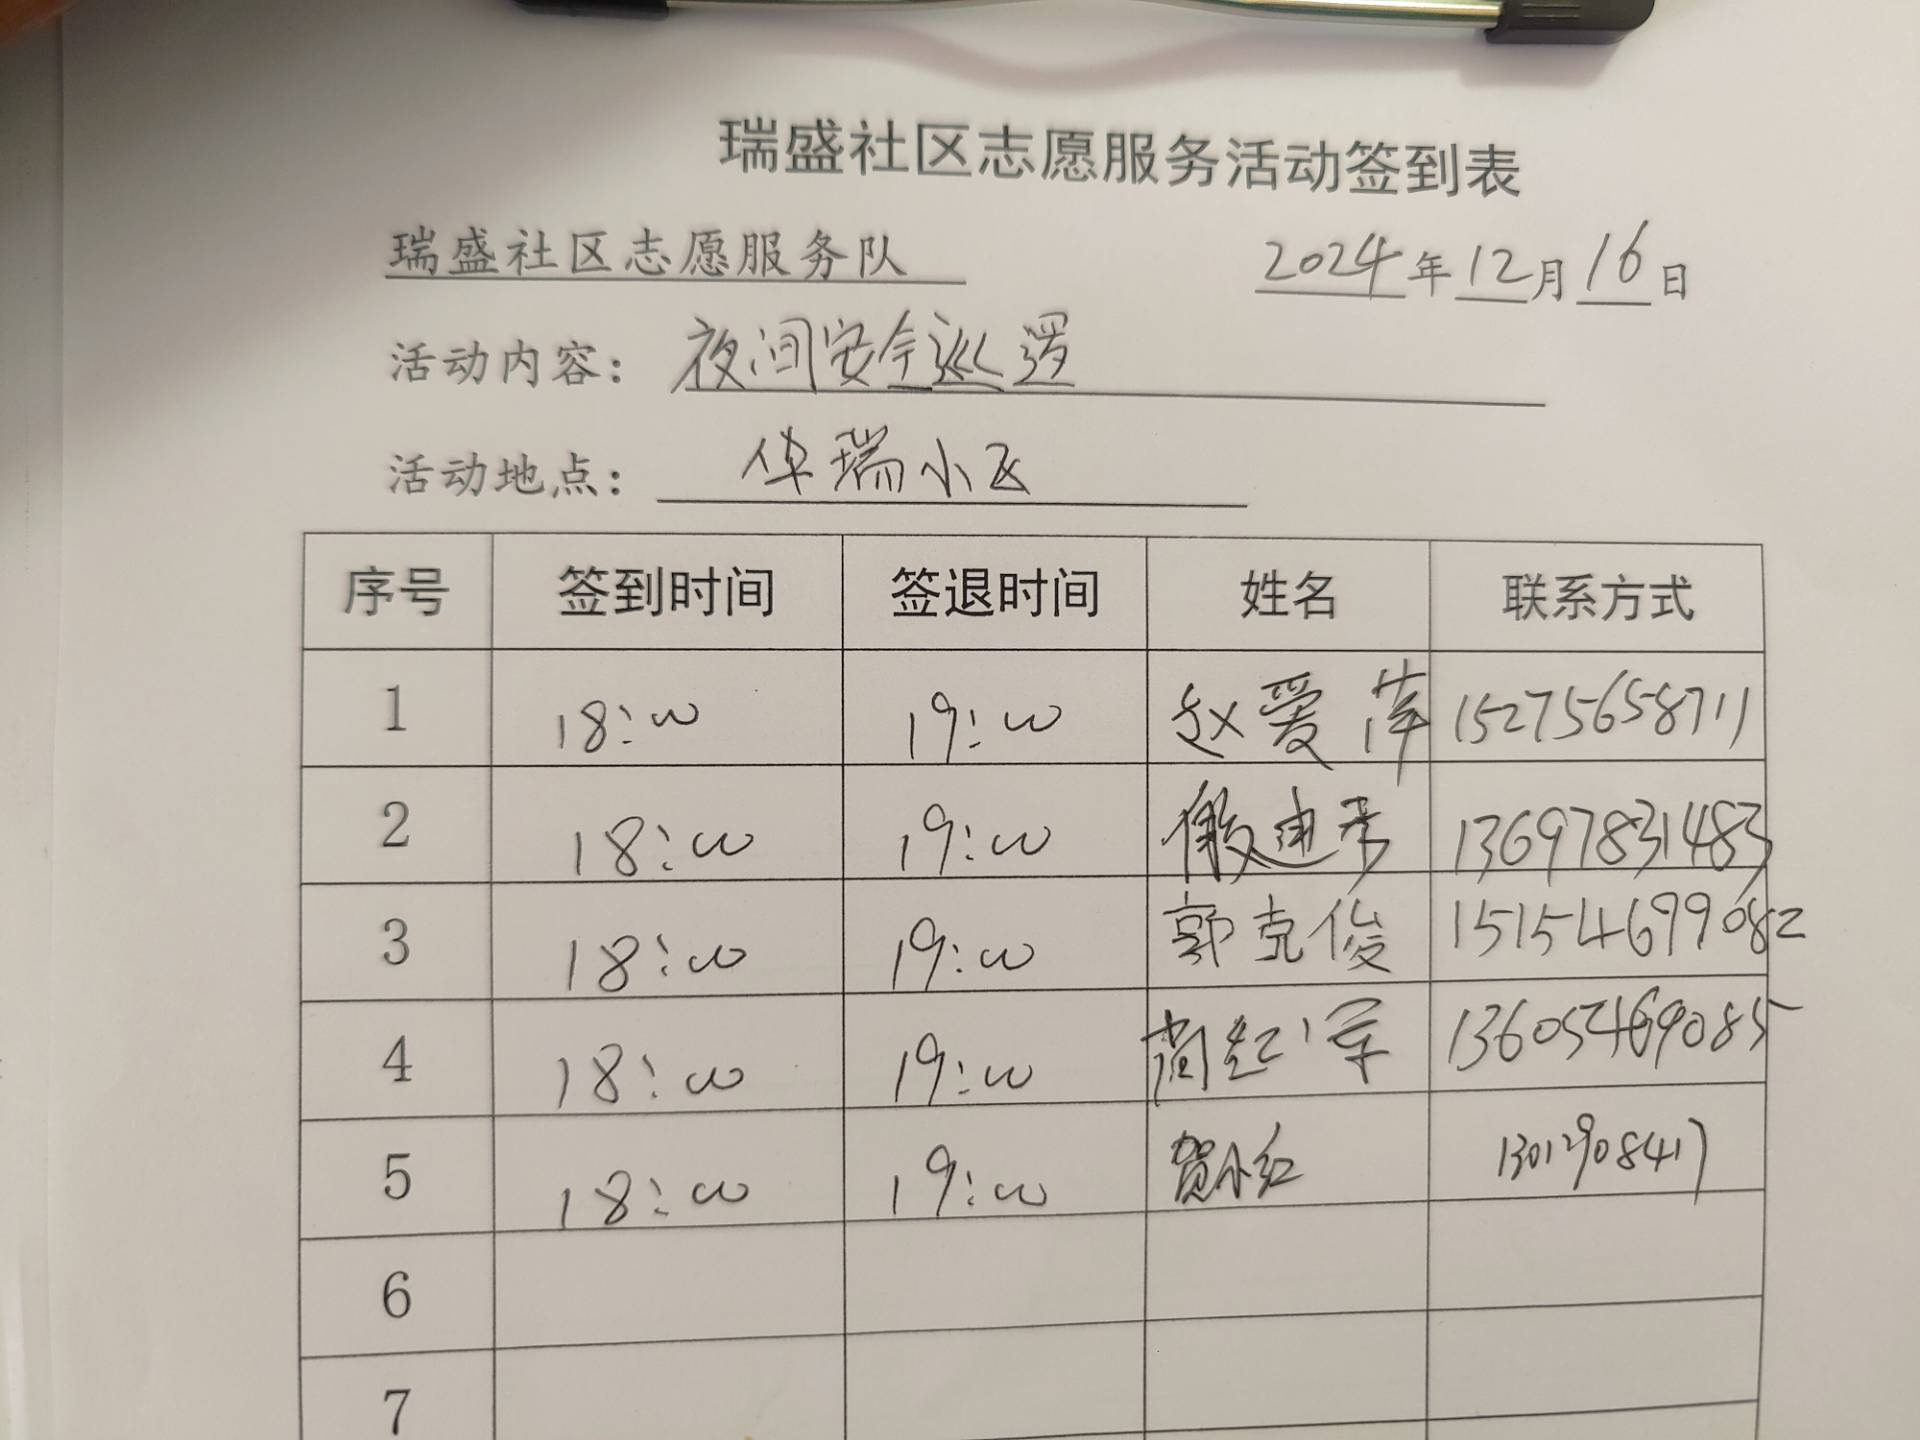 瑞盛社区志愿服务活动签到表
瑞盛社区志愿服务队 2024年12月16日
活动内容：夜间安全巡逻
活动地点：华瑞小区
序号 签到时间 签退时间 姓名 联系方式
1 18:00 19:00 赵爱萍 15275658711
2 18:00 19:00 13697831483
3 18:00 19:00 郭克俊 15154699082
4 18:00 19:00 尚红军 13605469085
5 18:00 19:00 贺小红
6
7